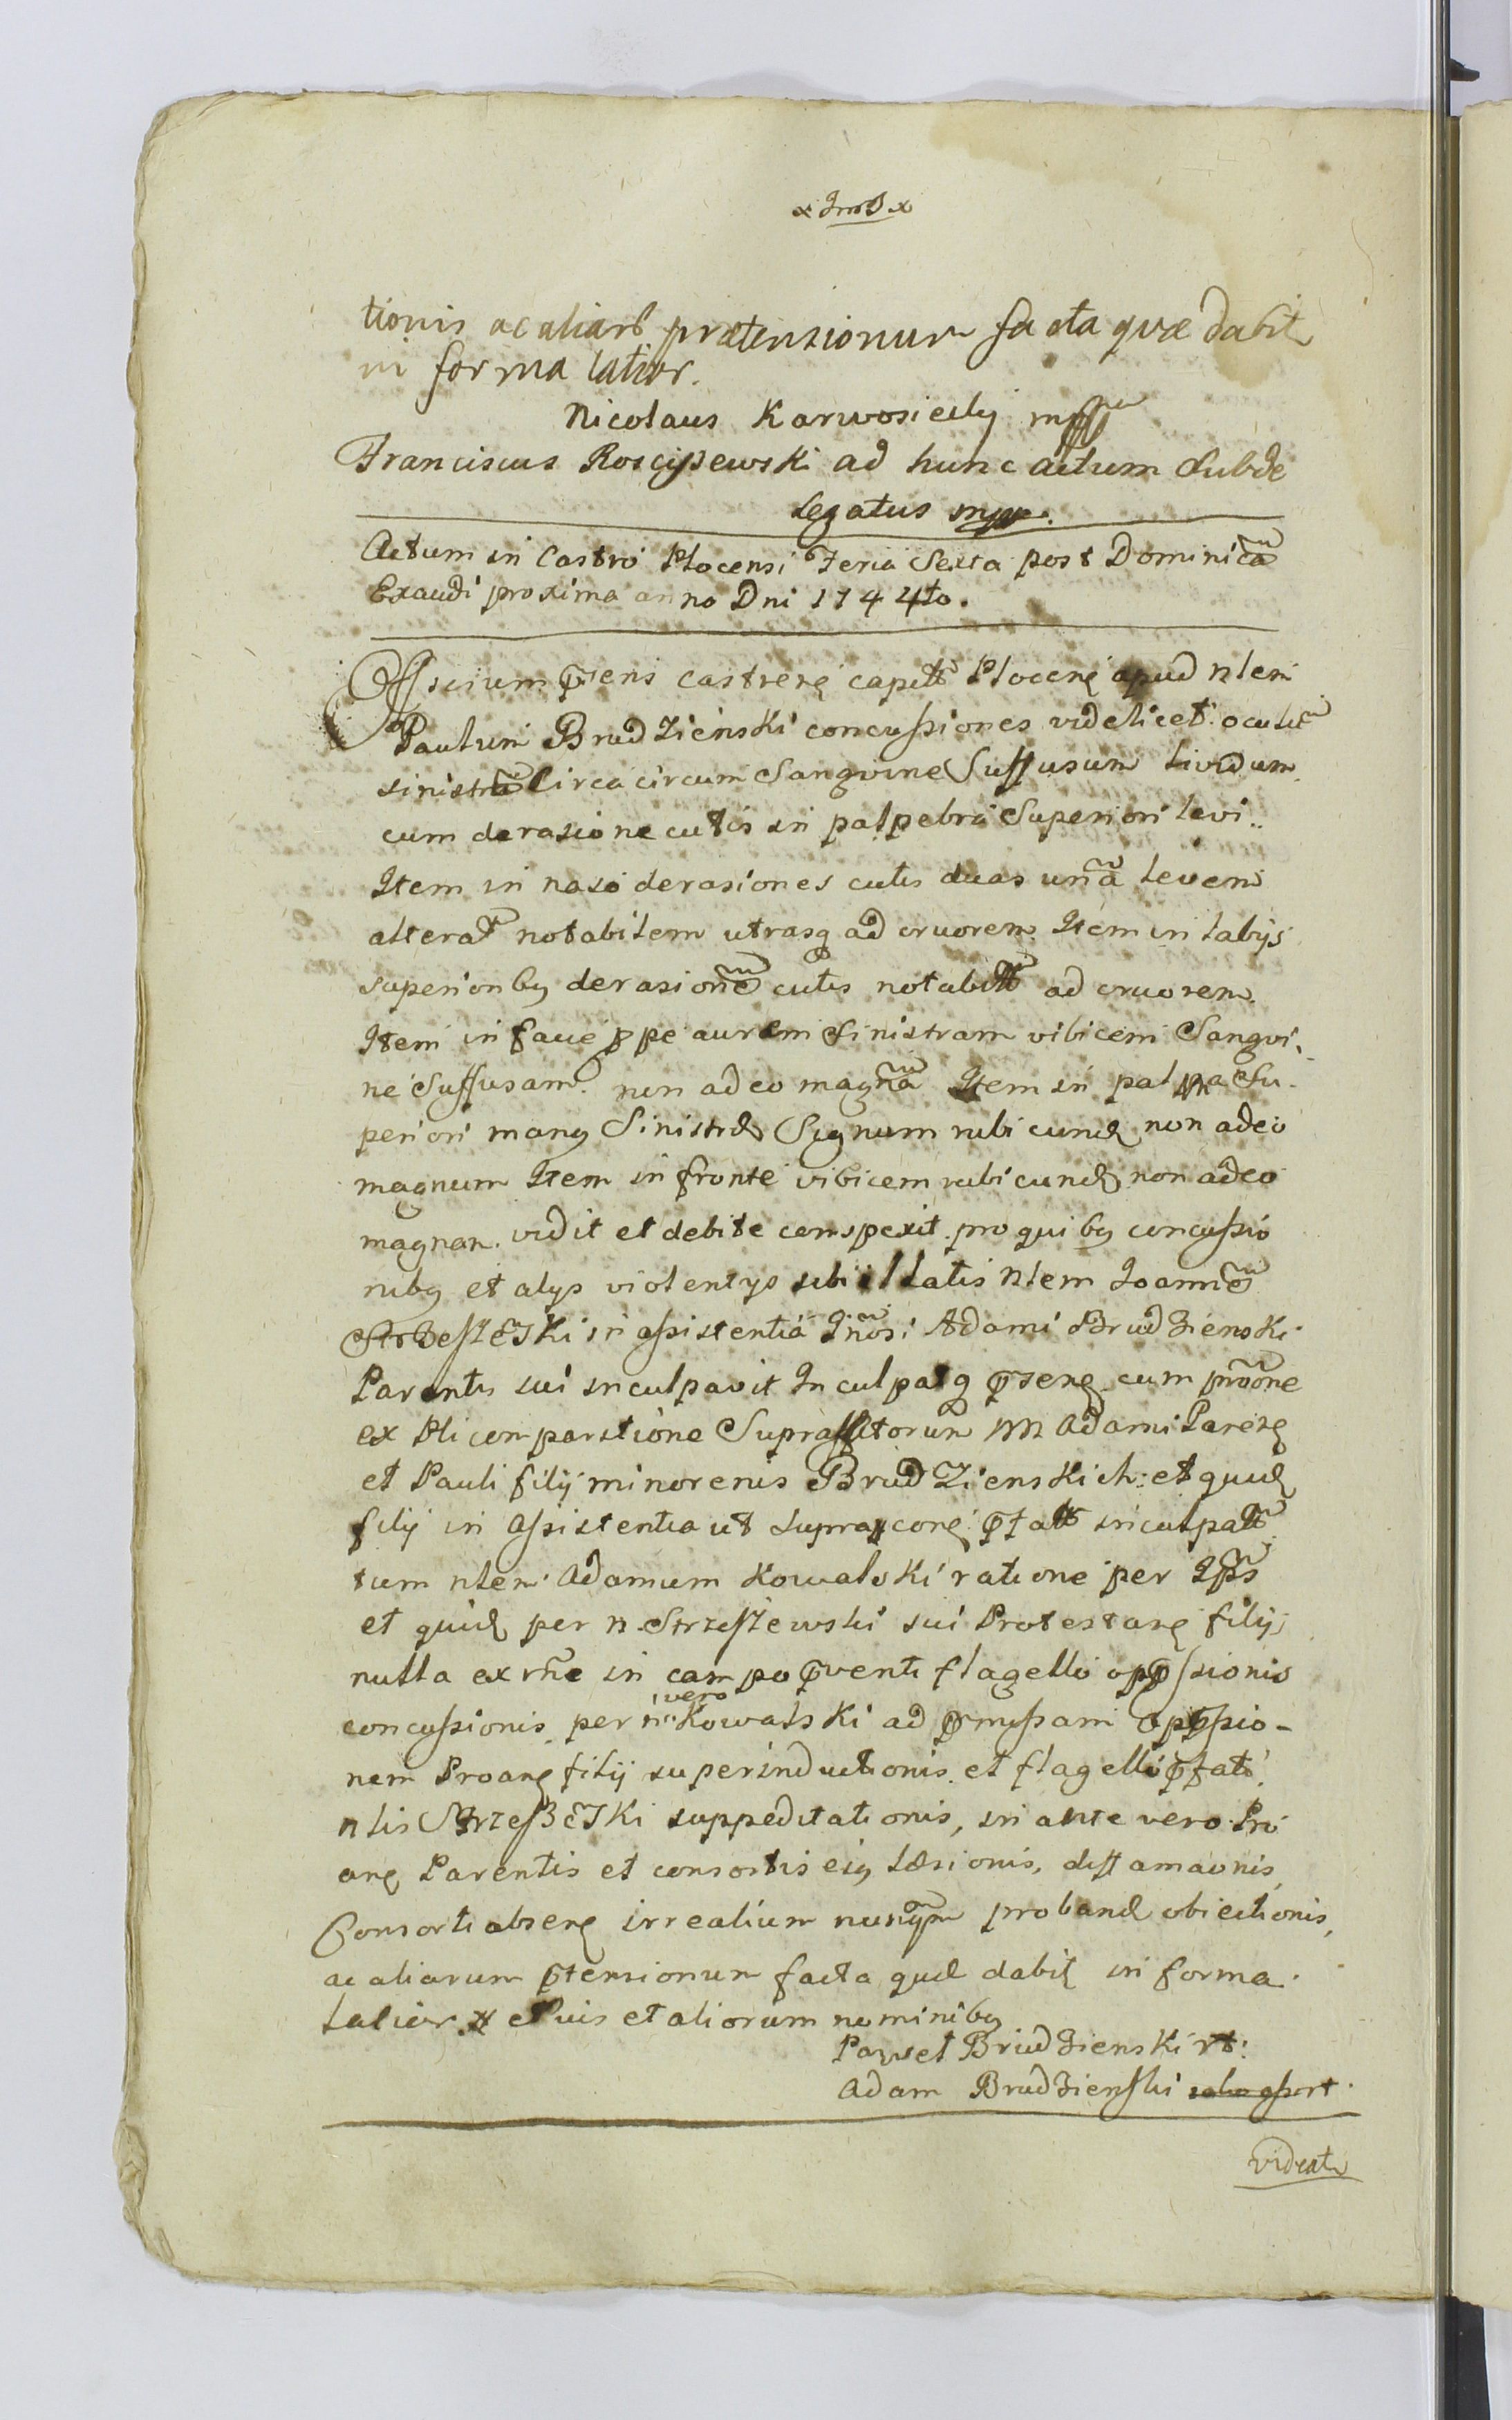 tionis ac aliarũ prætensionum facta quæ dabit
in forma latior.
Nicolaus Karwosiecky mppa
Franciscus Roscyszewski ad hunc actum Subde
legatus mpp.
Actum in Castro Plocensi Feria Sexta post Dominicã
Exaudi proxima anno Dni 1744to.
Officium pñens castrenẽ capitt Plocenẽ apud nlem
Paulum Brudzienski concussiones videlicet oculũ
sinistrũ circa circum Sangvine Suffusum lividum
cum derasione cutis in palpebra Superiori levi..
Item in naso derasiones cutis duas unã levem
alterã notabilem utrasq ad cruorem. Item in labijs
superioriby derasionẽ cutis notabilẽ ad cruorem.
Item in facie ppe aurem Sinistram vibicem Sangvi-
ne Suffusam. non adeo magnã Item in palma Su-
periori many Sinistræ Signum rubicund non adeo
magnum Item in fronte vibicem rubicund non adeo
magnam. vidit et debite conspexit. pro quiby concussio
niby et alys violentys sibi illatis nlem Joannẽ
Strzeszewski in assistentia Gñosi Adami Brudzienski
Parentis sui inculpavit Inculpatq pñsenẽ cum proõne
ex pti comparitione Supraffatorum MM Adami Parenẽ
et Pauli filij minorenis Brudzienskich: et quid
filij in Assistentia ut supra corẽ pfatt inculpatt
tum nlem Adamum Kowalski ratione per Ipŝ
et quid per n. Strzeszewski sui Protestanẽ filij
nulla ex rñe in campo pventi flagello oppssionis
concussionis per n. vero Kowalski ad pmissam oppssio-
nem Proanẽ filij superinductionis et flagelli pfato
nlis Strzeszewski suppeditationis, in ante vero Pro
anẽ Parentis et consortis eiy læsionis, diffamaonis,
Consorti absenẽ irrealium nunqm proband obiectionis,
ac aliarum ptensionum facta quæ dabit in forma
latior. suis et aliorum nominiby
Paweł Brudzienski
Adam Brudzienski
videat